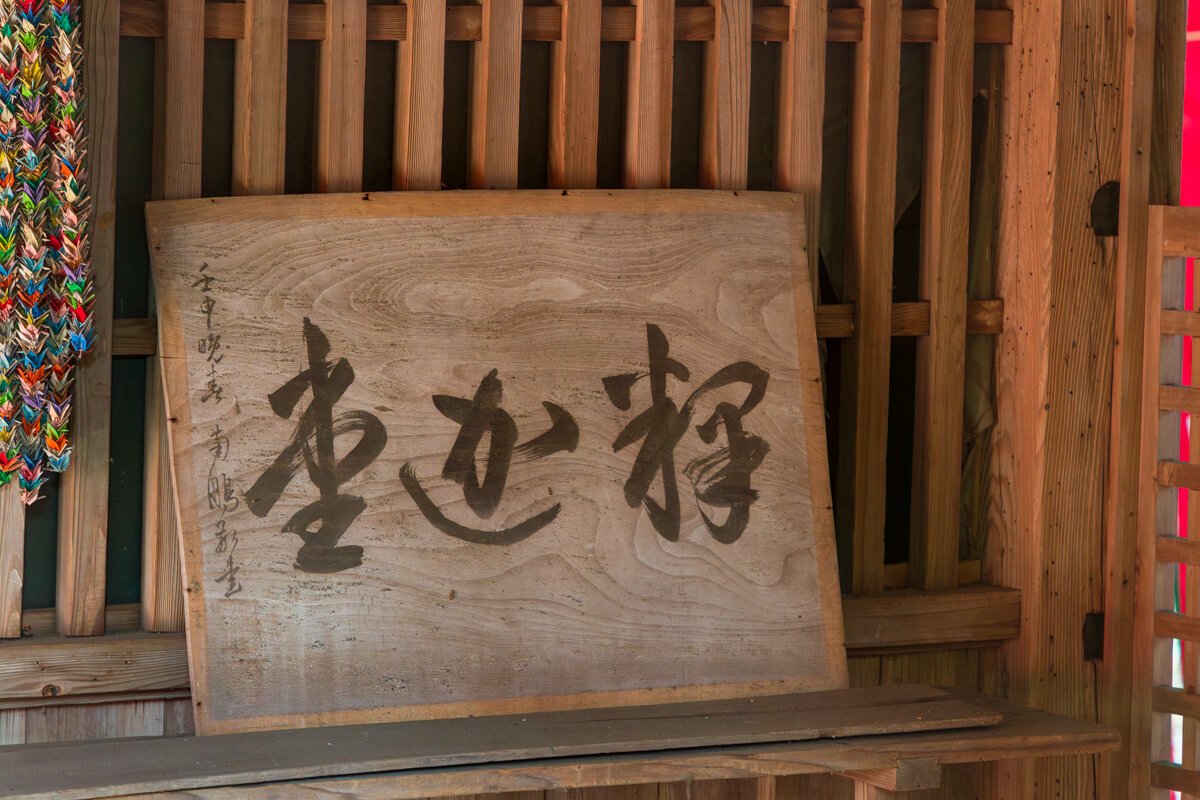 釋迦堂
壬申晩春 南鵬敬書